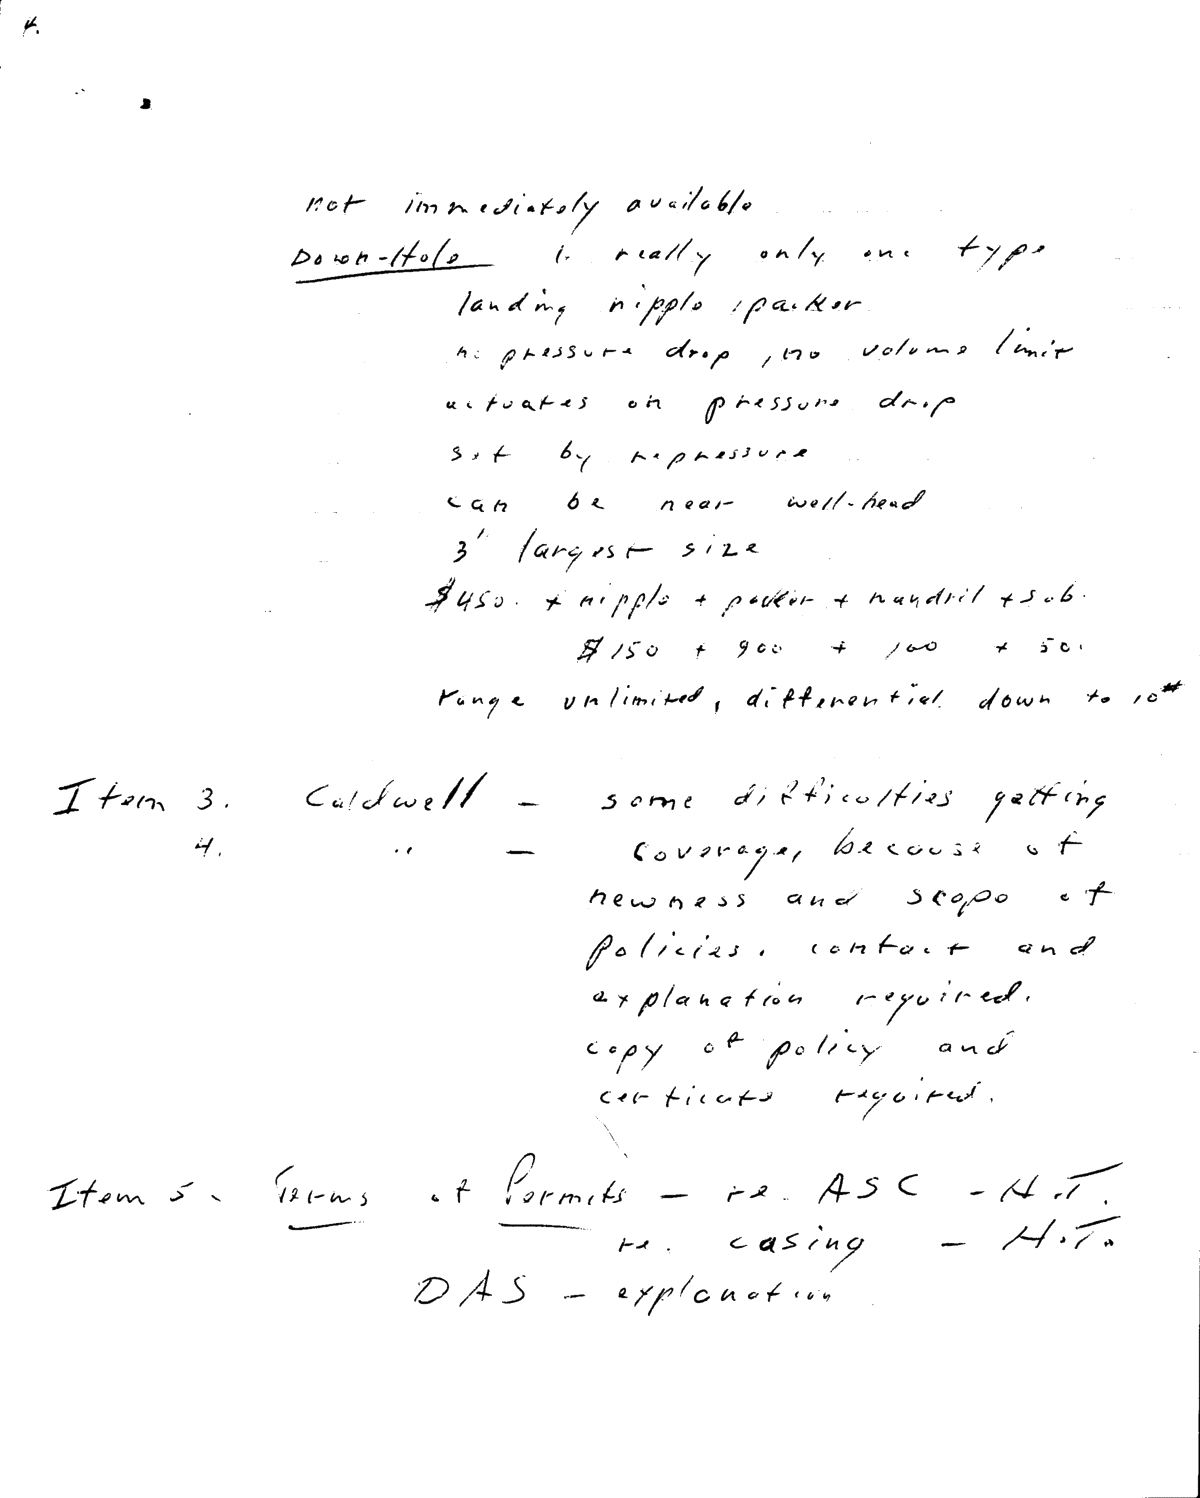 4.
not immediately available
Down-Hole 1. really only one type
landing nipple, packer
no pressure drop, no volume limit
actuates on pressure drop
set by repressure
can be near well-head
3" largest size
$450. + nipple + packer + mandril + sub.
$150 + 900 + 100 + 50.
range unlimited, differential down to 10#
Item 3. Caldwell - some difficulties getting
4. " - coverage, because of
newness and scope of
policies. contact and
explanation required.
copy of policy and
certicate required.
Item 5. Terms of Permits - re. ASC - H.T.
re. casing - H.T.
DAS - explanation